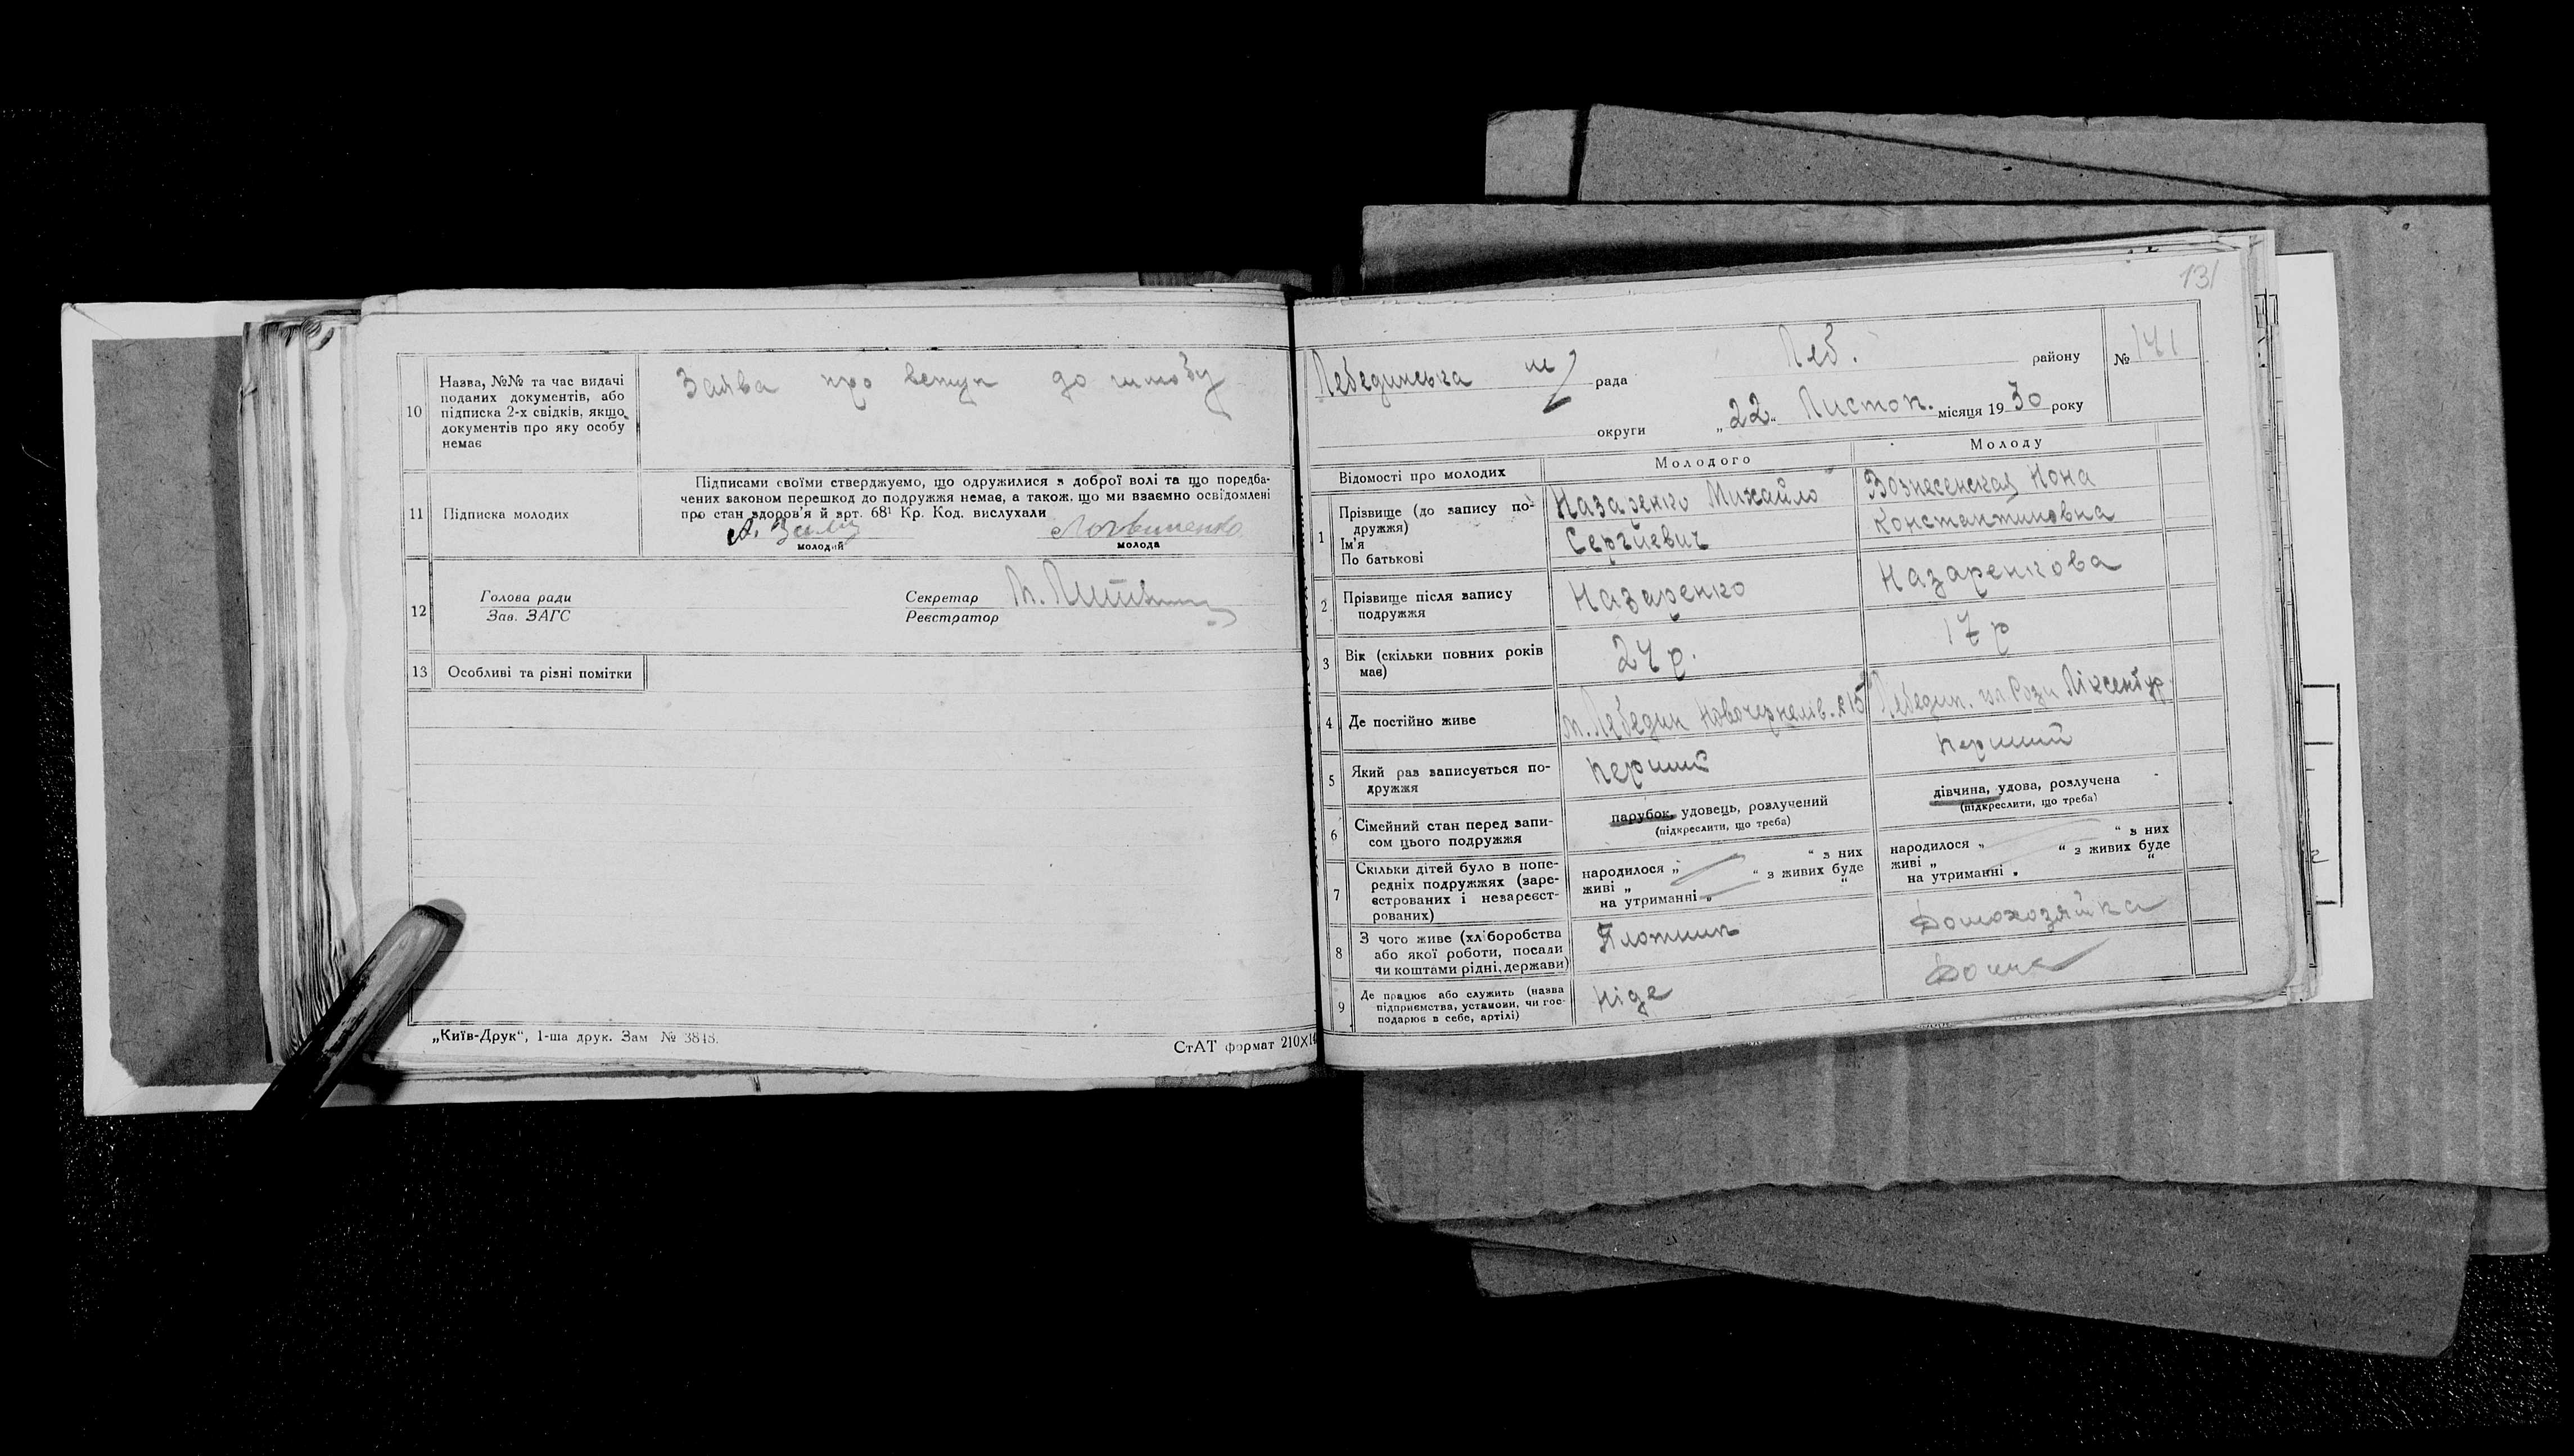 10
Назва, №№ та час видачі
поданих документів, або
підписка 2-х свідків, якщо
документів про яку особу
немає
Заява про вступ до шлюбу
11
Підписка молодих
Підписами своїми стверджуємо, що одружилися з доброї волі та що поредба-
чених законом перешкод до подружжя немає, а також, що ми взаємно освідомлені
про стан здоров'я й арт. 68¹ Кр. Код. вислухали
А.
Логвиненко
молодий
молода
12
Голова ради
Зав. ЗАГС
Секретар
Реєстратор
13
Особливі та різні помітки
„Київ-Друк“, 1-ша друк. Зам № 3848.
СтАТ формат 210×14
131
Лебединська м рада
Леб. району
№ 141
округи
„22“ Листоп. місяця 1930 року
Відомості про молодих
Молодого
Молоду
1
Прізвище (до запису по-
дружжя)
Ім'я
По батькові
Назаренко Михайло
Сергиевич
Вознесенская Нона
Константиновна
2
Прізвище після запису
подружжя
Назаренко
Назаренкова
3
Вік (скільки повних років
має)
24 р.
17 р
4
Де постійно живе
м. Лебедин Новочернелів. № 15
Лебедин. ул Рози Ліксенбур.
5
Який раз записується по-
дружжя
перший
перший
6
Сімейний стан перед запи-
сом цього подружжя
парубок, удовець, розлучений
(підкреслити, що треба)
дівчина, удова, розлучена
(підкреслити, що треба)
7
Скільки дітей було в попе-
редніх подружжях (заре-
єстрованих і незареєст-
рованих)
народилося „ “ з них
живі „ “ з живих буде
на утриманні „ “
народилося „ “ з них
живі „ “ з живих буде
на утриманні „ “
8
З чого живе (хліборобства
або якої роботи, посади
чи коштами рідні, держави)
Плотник
Домохозяйка
9
Де працює або служить (назва
підприємства, установи, чи гос-
подарює в себе, артілі)
Ніде
Дома